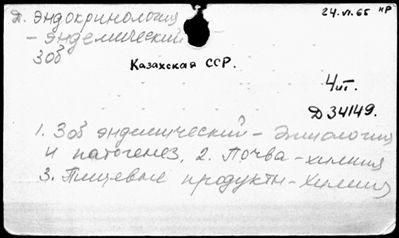 Д. Эндокринология 24.VI.65 КР
- эндемический
Зоб
Казахская ССР.
4шт.
Д34149.
1. Зоб эндемический - Этиология
и патогенез. 2. Почва - химия
3. Пищевые продукты - Химия